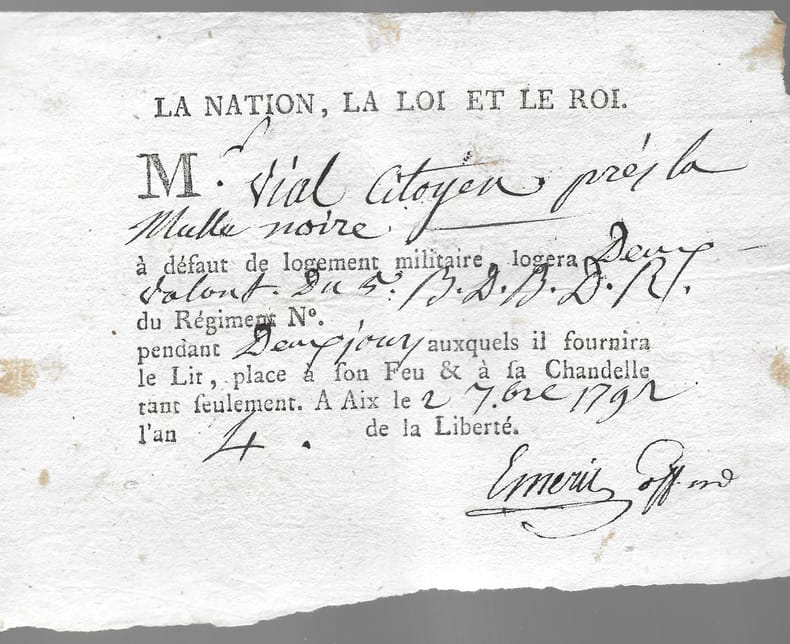 LA NATION, LA LOI ET LE ROI.
Mr. Vial Citoyen près la
Mulle noire
à défaut de logement militaire, logera Deux
Volont. Du 5e. B. D. B. D. R.
du Régiment No.
pendant Deux jours auxquels il fournira
le Lit, place à ſon Feu & à ſa Chandelle
tant ſeulement. A Aix le 2 7.bre 1792
l'an 4. de la Liberté.
Emeric